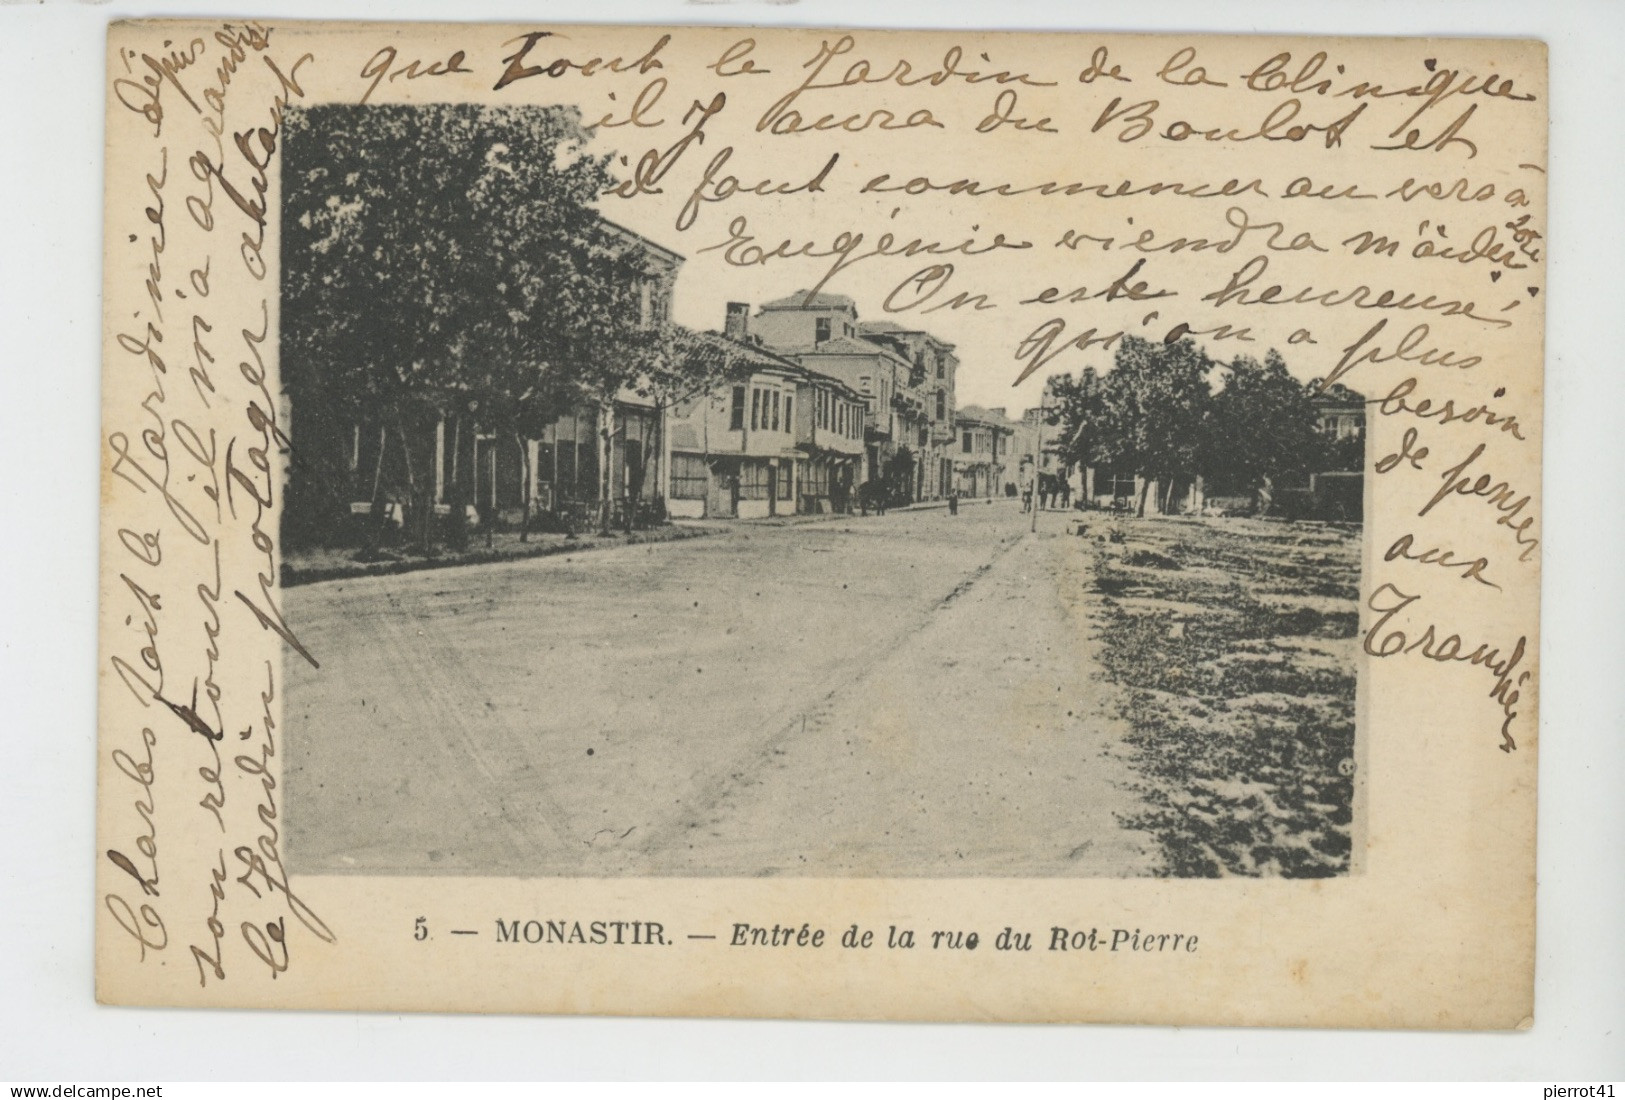 Charles fait le Jardinier dépuis
son retour il m'a agrandis
le Jardin potager autant
que tout le Jardin de la Clinique
il y aura du Boulot et
il faut commencer au vers à
Eugénie viendra m'aider
On este heureuse
qu'on a plus
besoin
de penser
aux
5. — MONASTIR. — Entrée de la rue du Roi-Pierre
https://www.delcampe.net
pierrot41